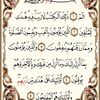 الٓمٓ ذَٰلِكَ ٱلْكِتَٰبُ لَا رَيْبَ فِيهِ هُدًى
لِّلْمُتَّقِينَ ٱلَّذِينَ يُؤْمِنُونَ بِٱلْغَيْبِ وَيُقِيمُونَ
ٱلصَّلَوٰةَ وَمِمَّا رَزَقْنَٰهُمْ يُنفِقُونَ وَٱلَّذِينَ يُؤْمِنُونَ
بِمَآ أُنزِلَ إِلَيْكَ وَمَآ أُنزِلَ مِن قَبْلِكَ وَبِٱلْءَاخِرَةِ هُمْ
يُوقِنُونَ أُو۟لَٰٓئِكَ عَلَىٰ هُدًى مِّن رَّبِّهِمْ